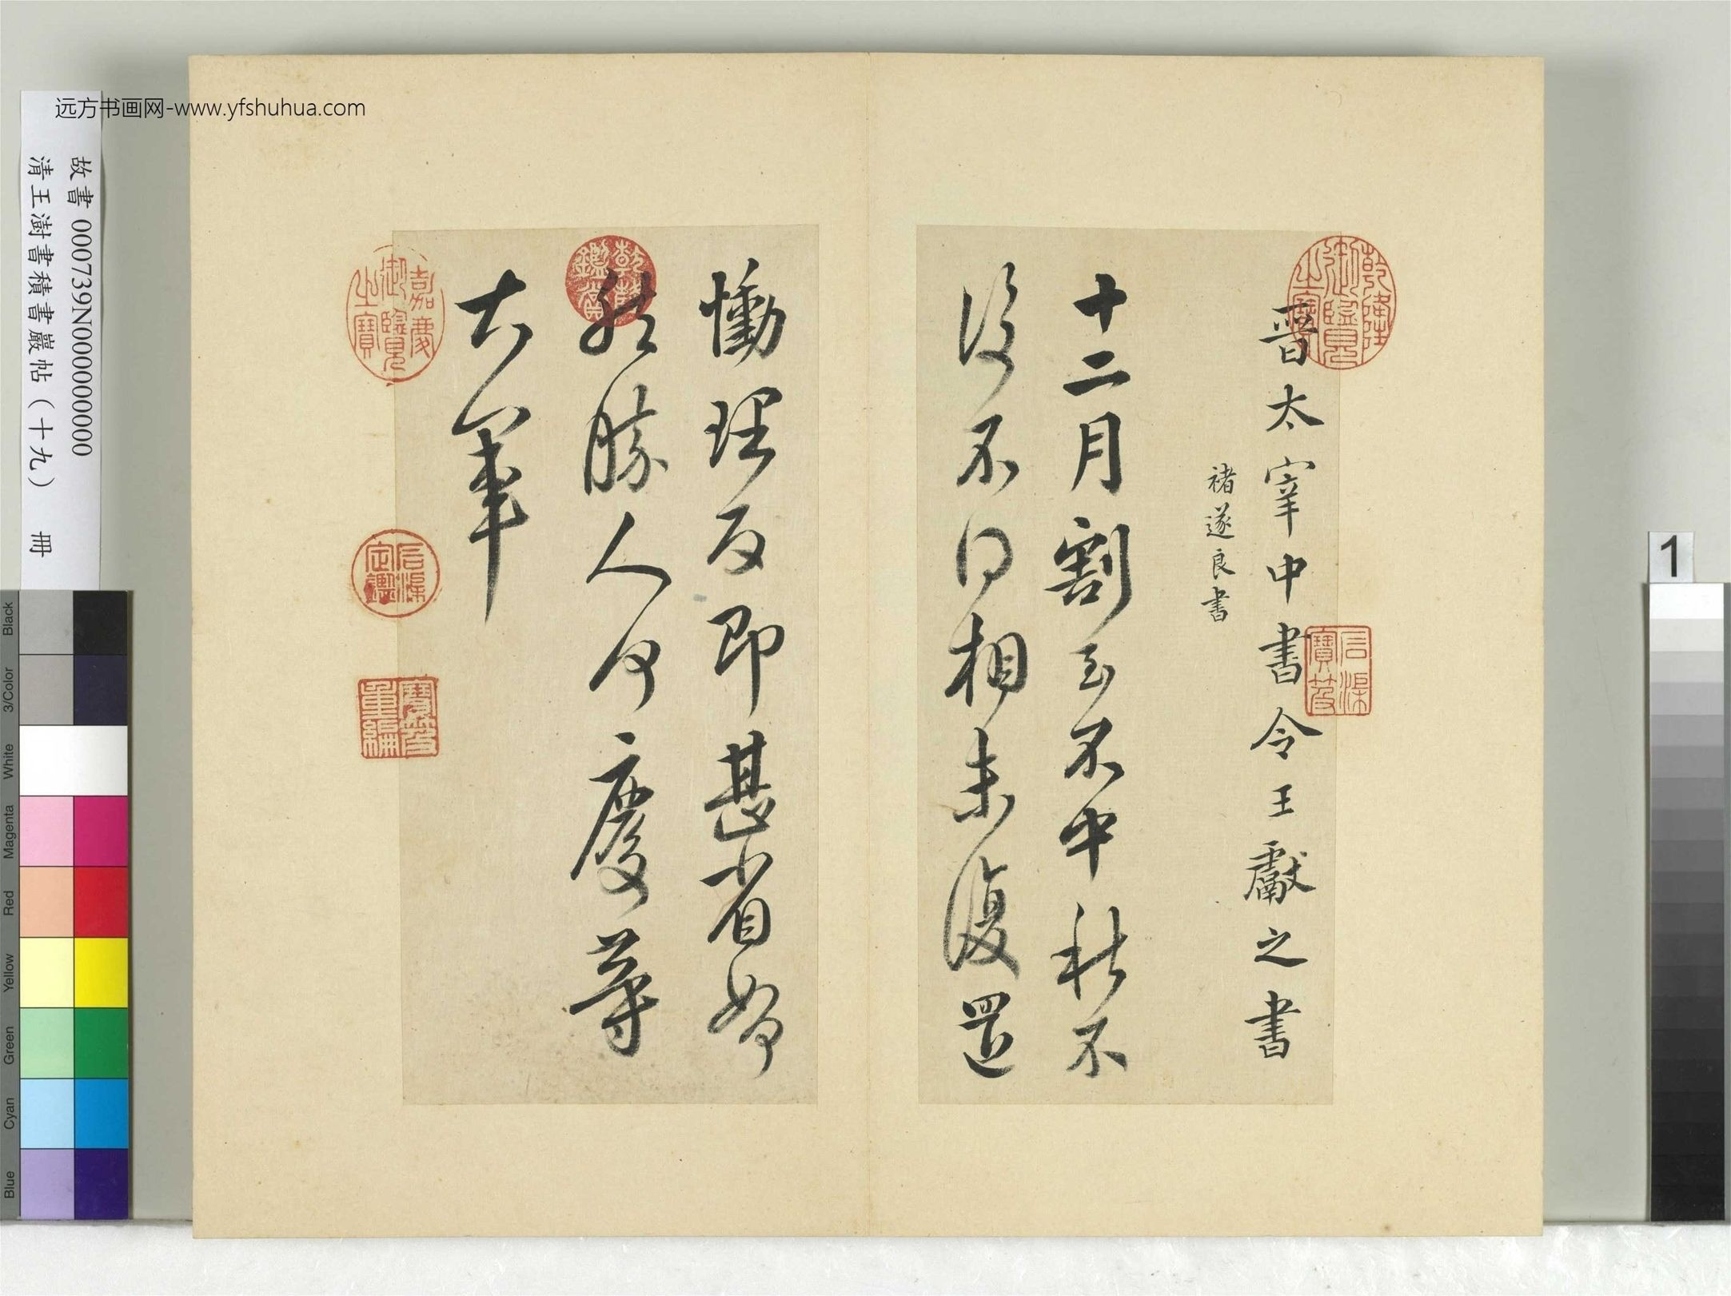 远方书画网-www.yfshuhua.com
故書 000739N000000000
清王澍書積書巖帖（十九） 冊
晉太宰中書令王獻之書
褚遂良書
十二月割至不中秋不
復不得相未復還
慟理及即甚省如
然勝人何慶等
大軍
乾隆御覽之寶
乾隆鑑賞
嘉慶御覽之寶
石渠寶笈
石渠定鑑
寶笈重編
1
Black
3/Color
White
Magenta
Red
Yellow
Green
Cyan
Blue